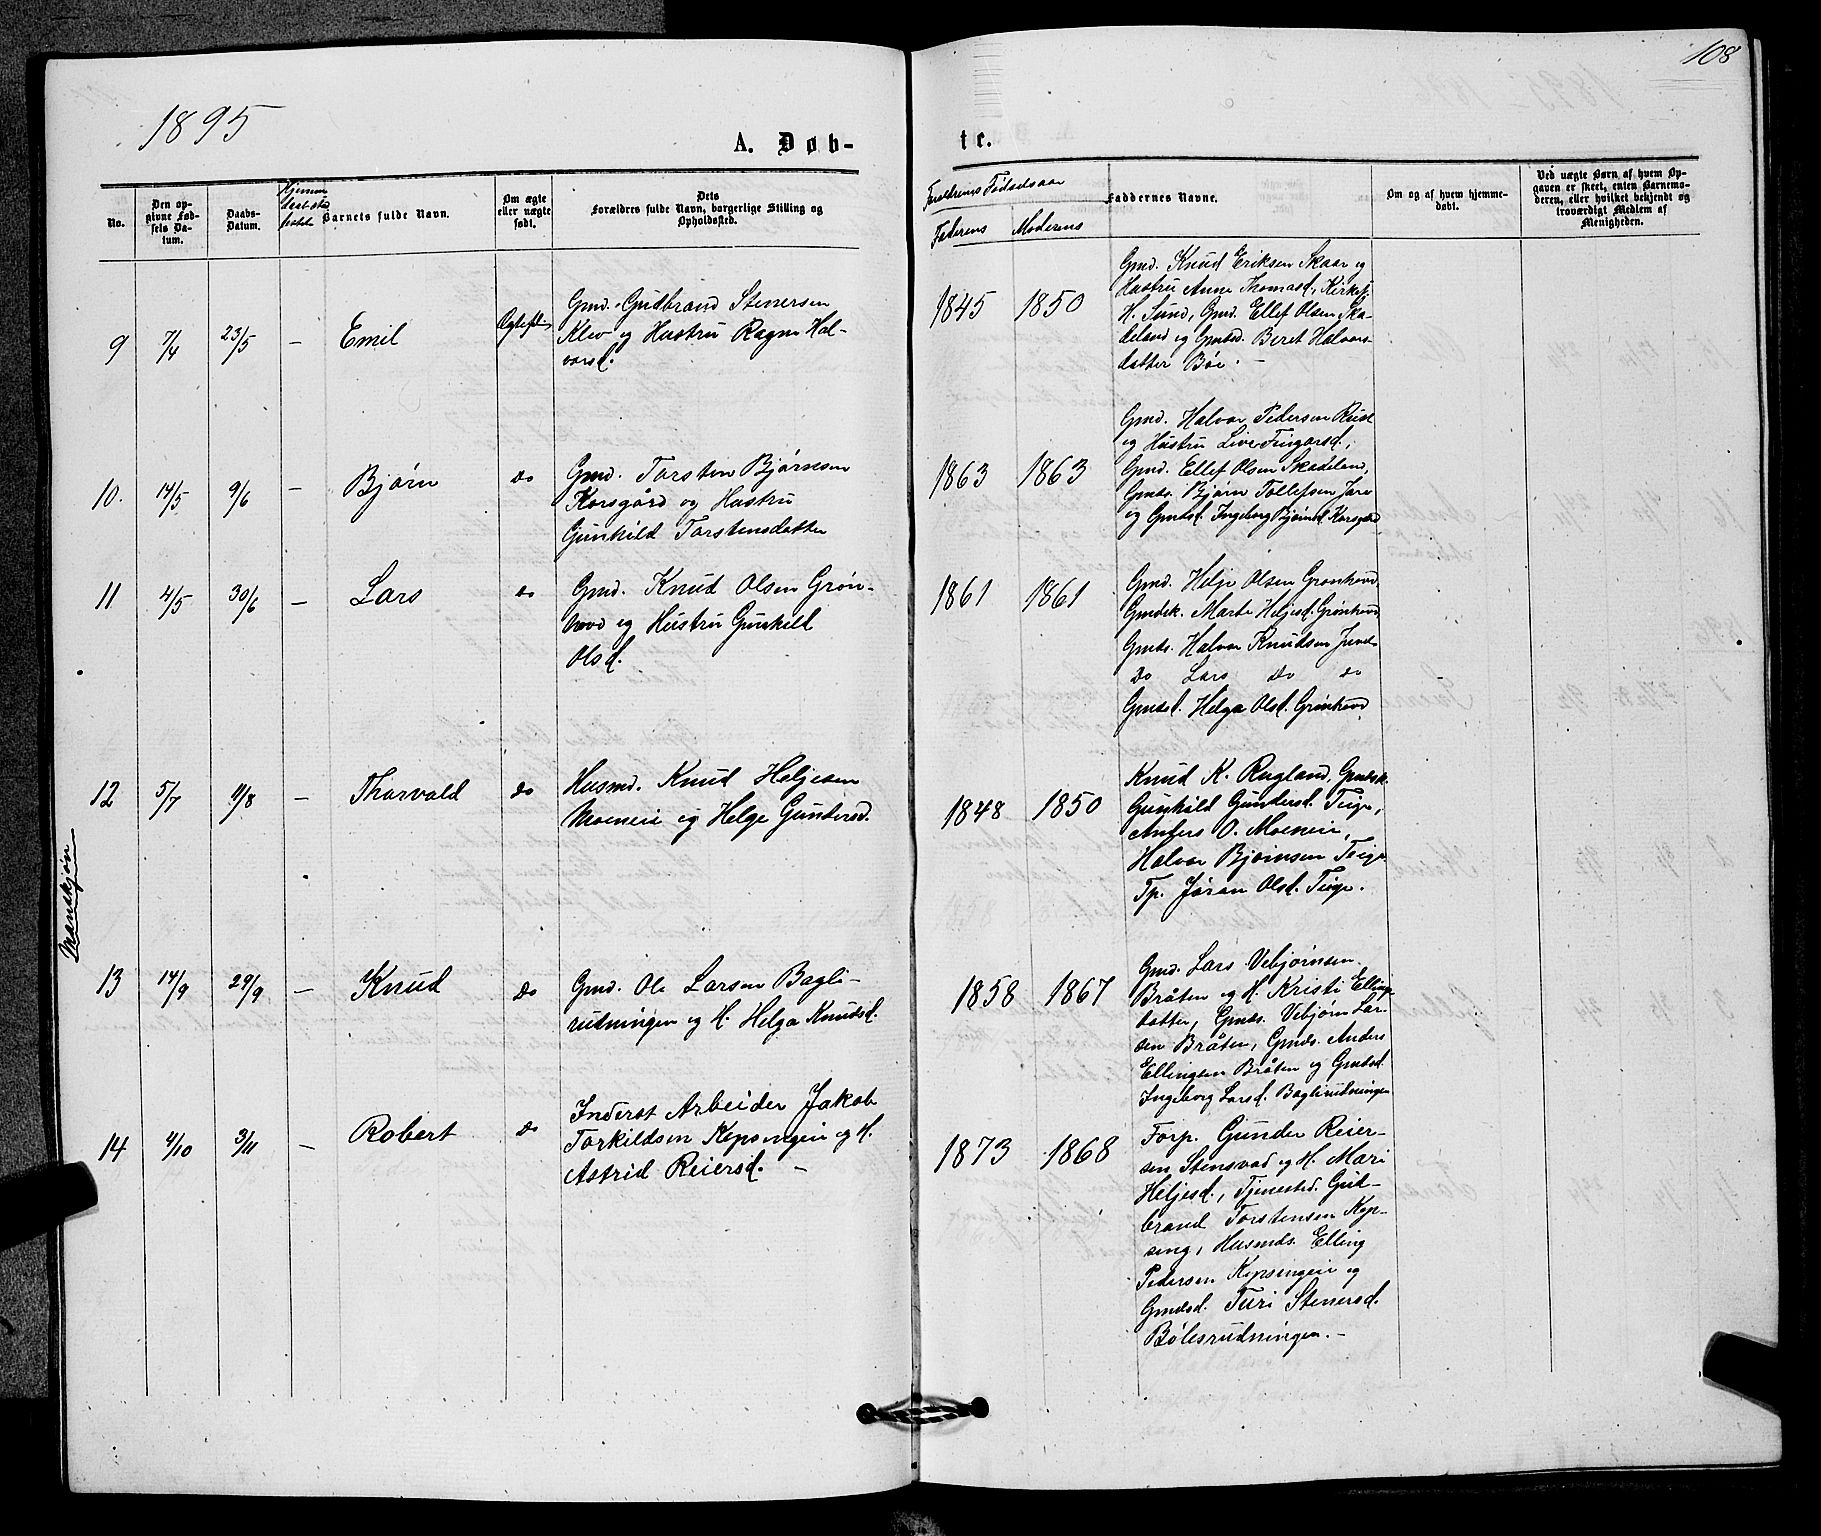 108
1895
A. Døb-
te.
No.
Den op-
givne Fød-
sels Da-
tum.
Daabs-
Datum.
Barnets fulde Navn.
Om ægte
eller uægte
født.
Dets
Forældres fulde Navn, borgerlige Stilling og
Opholdssted.
Forældrenes Fødselsaar
Faderens
Moderens
Faddernes Navne.
Om og af hvem hjemme-
døbt.
Ved uægte Børn af hvem Op-
gaven er skeet, enten Barnemo-
deren, eller hvilket bekjendt og
troværdigt Medlem af
Menigheden.
Mandkjøn
9
7/4
23/5
—
Emil
Gmd. Gudbrand Stenersen
Klev og Hustru Ragne Hal-
vorsd.
1845
1850
Gmd. Knud Eriksen Skaar og
Hustru Anne Thomasd., Kirkesj.
H. Sund, Gmd. Ellef Olsen Ska-
deland og Gmdsd. Beret Halvors-
datter Böe. —
10.
14/5
9/6
—
Bjørn
do
Gmd. Torsten Bjørnsen
Korsgård og Hustru
Gunhild Torstensdatter
1863
1863
Gmd. Halvor Pedersen Rust
og Hustru Live Fingarsd.,
Gmd. Ellef Olsen Skadeland,
Gmds. Bjørn Tollefsen Jare
og Gmdsd. Ingeborg Bjørnsd. Korsgård
11
4/5
30/6
—
Lars
do
Gmd. Knud Olsen Grøn-
hovd og Hustru Gunhild
Olsd.
1861
1861
Gmd. Helje Olsen Grønhovd
Gmdsk. Marte Heljesd. Grønhovd
Gmds. Halvor Knudsen
do Lars do do
Gmdsd. Helga Olsd. Grønhovd
12
5/7
11/8
—
Thorvald
do
Husmd. Knud Heljesen
Moeneie og Helge Gundersd.
1848
1850
Knud K. Rugland, Gmdsk.
Gunhild Gundersd. Teige,
Anders O. Moeneie,
Halvor Bjørnsen Teige
Tp. Jøran Olsd. Teige.
13
14/9
29/9
—
Knud
do
Gmd. Ole Larsen Bagli-
rudningen og H. Helga Knudsd.
1858
1867
Gmd. Lars Vebjørnsen
Bråten og H. Kristi Ellings-
datter, Gmds. Vebjørn Lar-
sen Bråten, Gmds. Anders
Ellingsen Bråten og Gmdsd.
Ingeborg Larsd. Baglirudningen
14
4/10
3/11
—
Robert
do
Inderst Arbeider Jakob
Torkildsen Kopsengeie og H.
Astrid Reiersd. —
1873
1868
Forp. Gunder Reier-
sen Stensvad og H. Mari
Heljesd., Tjenested. Gud-
brand Torstensen Kop-
seng, Husmds. Elling
Pedersen Kopsengeie og
Gmdsd. Turi Stenersd.
Bölesrudningen. —